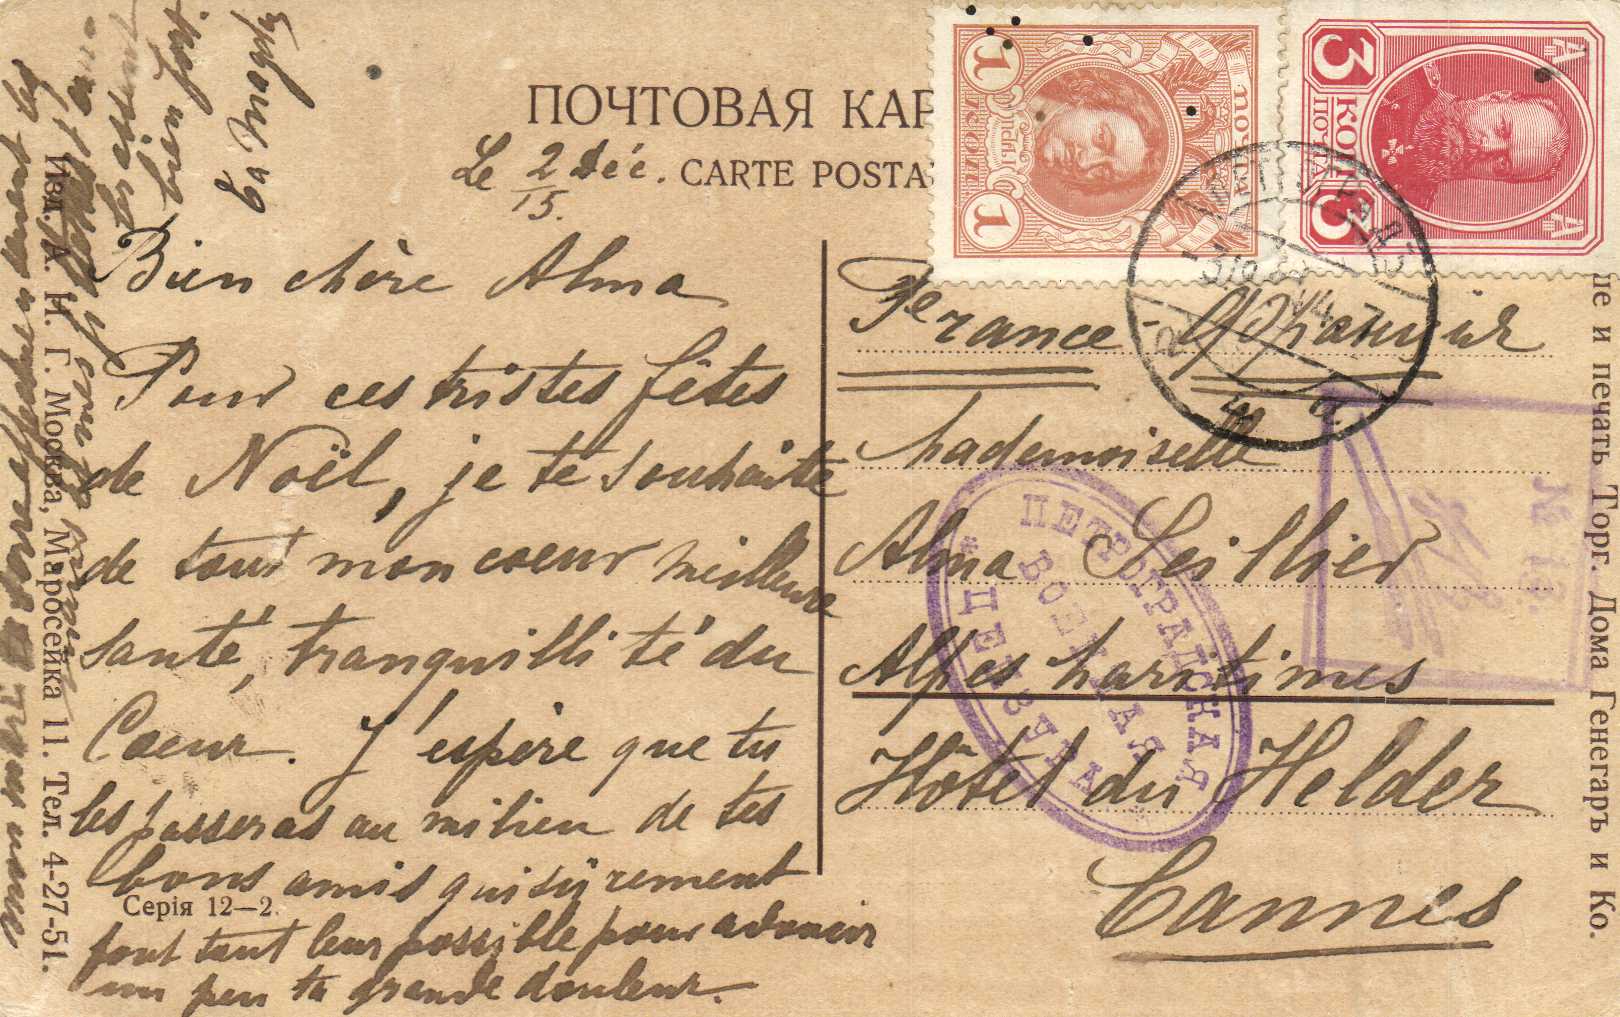 ПОЧТОВАЯ КАР
CARTE POSTA
Le 2 Déc.
15.
Bien chère Alma
Pour ces tristes fêtes
de Noël, je te souhaite
de tout mon coeur meilleure
santé, tranquillité du
Coeur. J'espère que tu
les passeras au milieu de tes
bons amis qui sûrement
font tout leur possible pour adoucir
un peu ta grande douleur.
Серія 12—2.
Изд. А. И. Г. Москва, Маросейка 11. Тел. 4-27-51.
1
1
ПОЧТА
3
3
КОП
ПОЧТА
France Франція
Mademoiselle
Alma Seillier
Alpes Maritimes
Hôtel du Helder
Cannes
ПЕТРОГРАДСКАЯ
ВОЕННАЯ
ЦЕНЗУРА
№ 13.
ие и печать Торг. Дома Генегаръ и Ко.